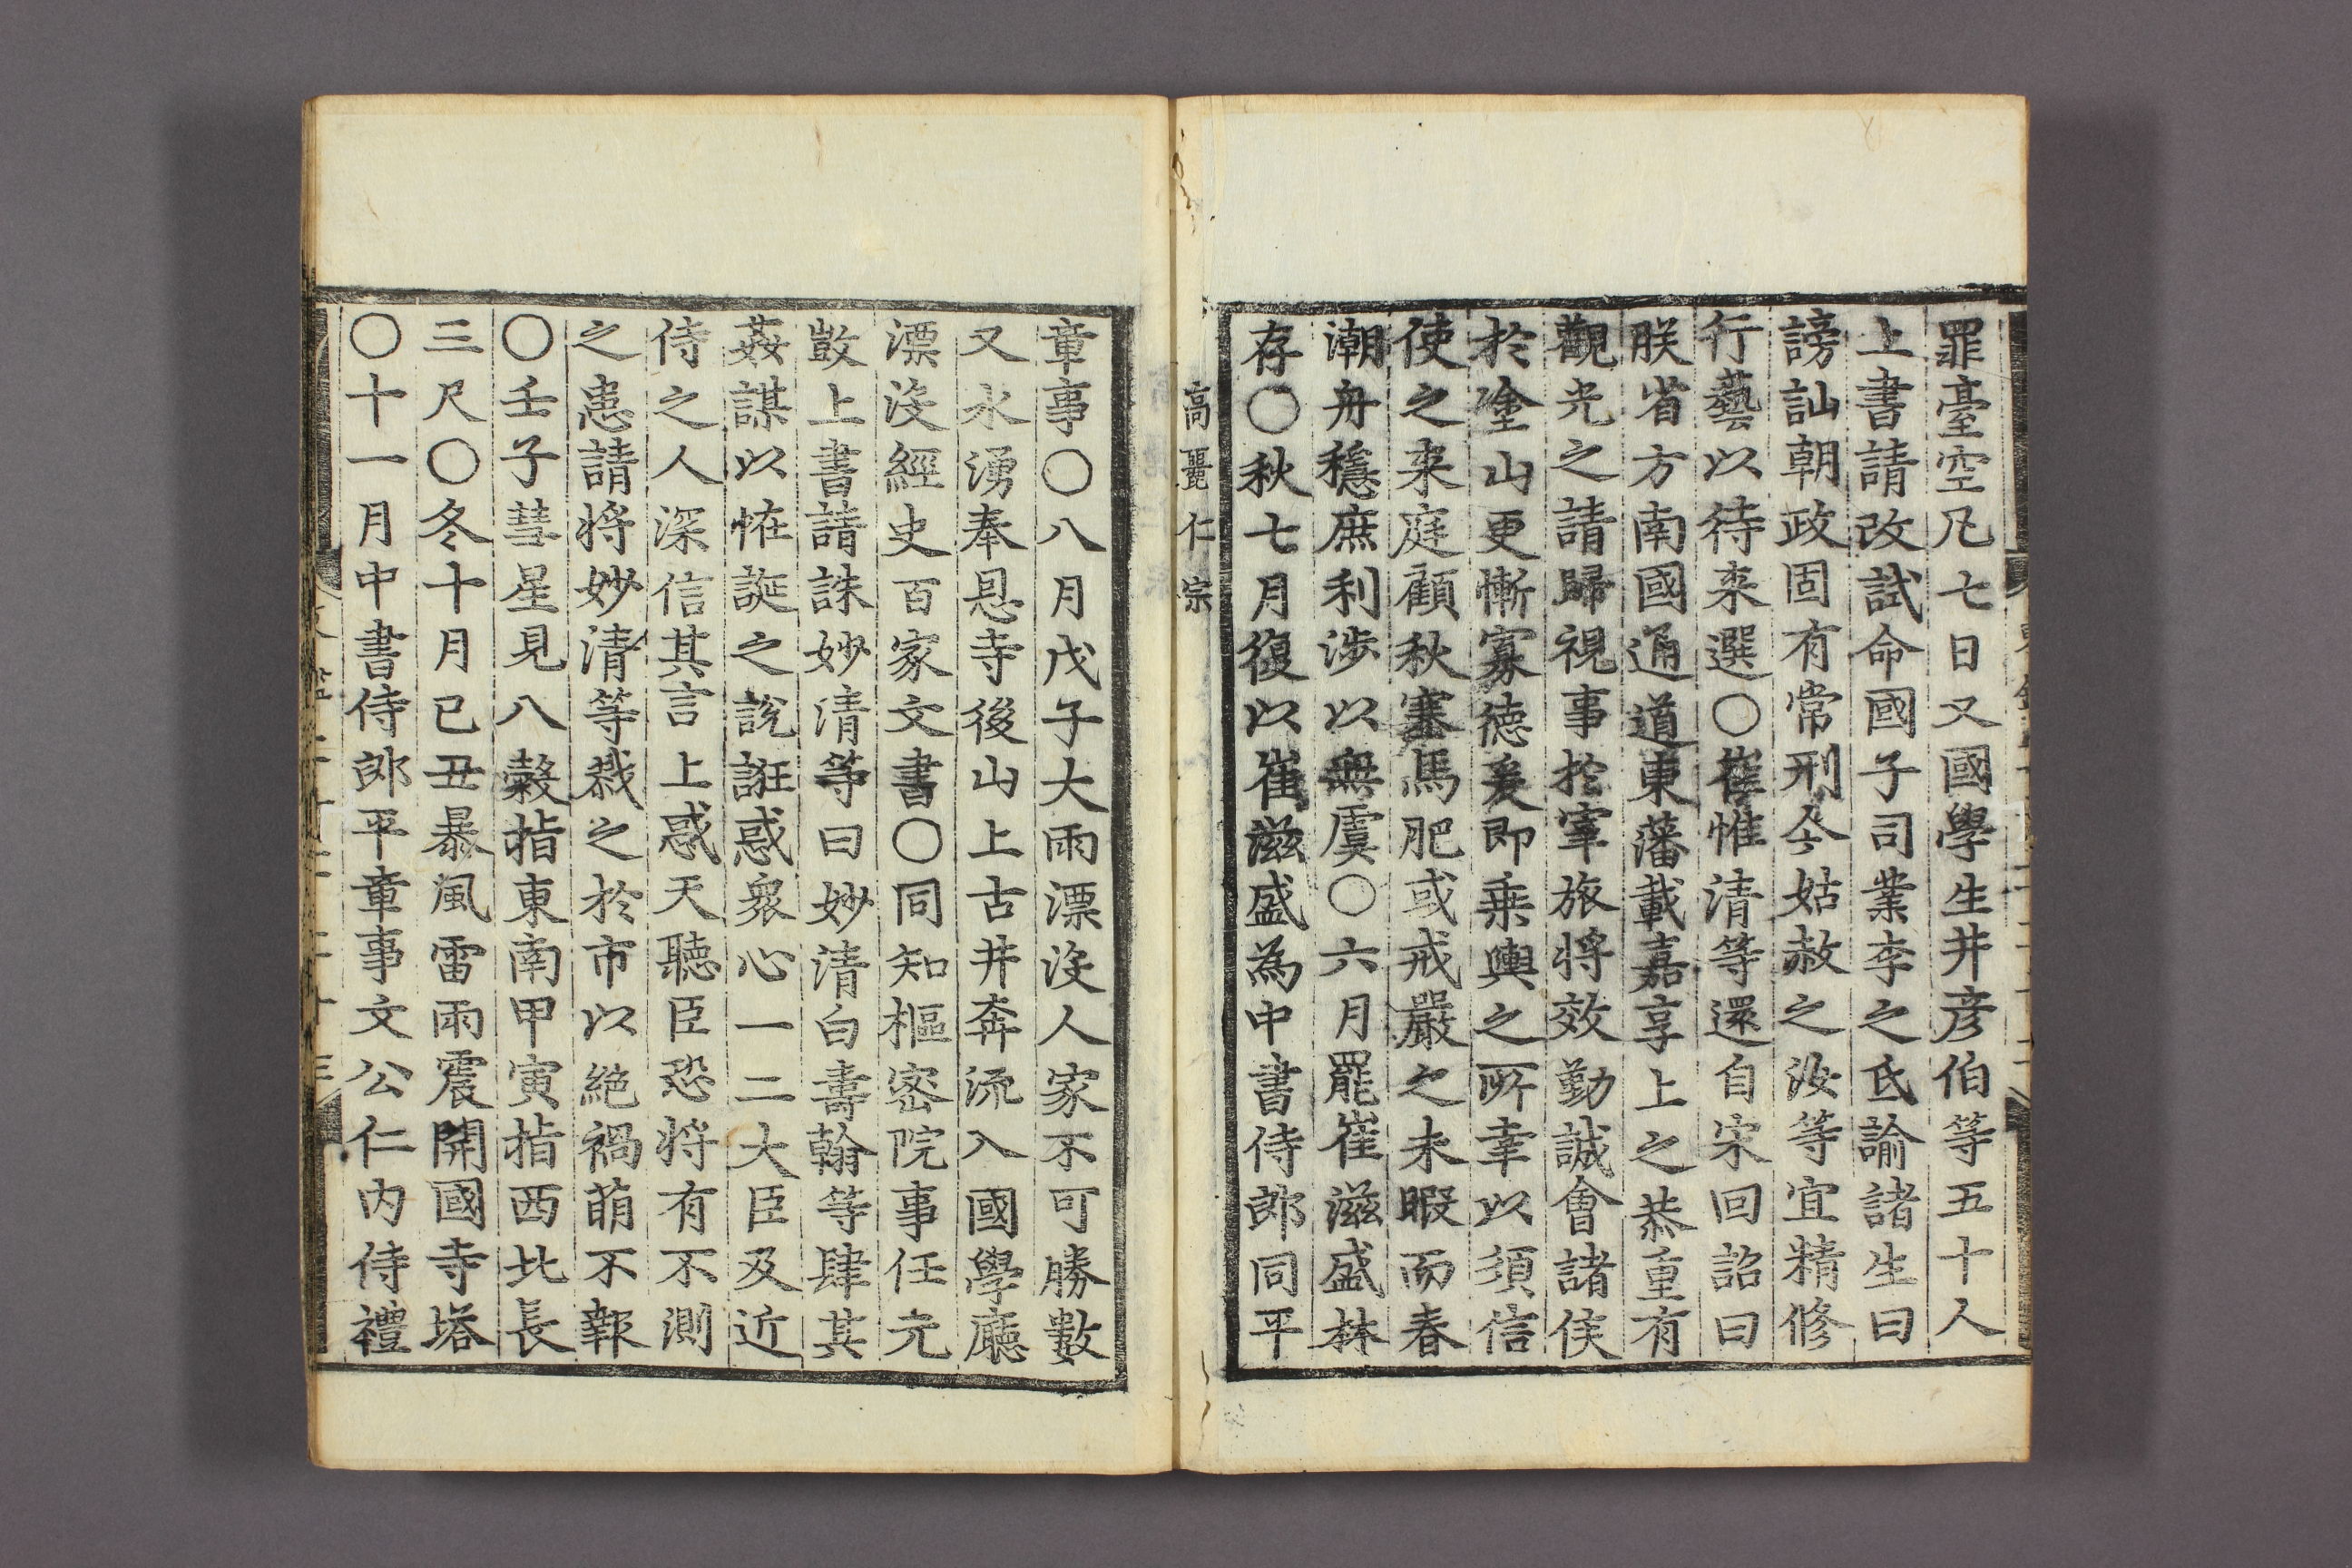 罪臺空凡七日又國學生井彥伯等五十人
上書請改試命國子司業李之氐諭諸生曰
謗訕朝政固有常刑今姑赦之汝等宜精修
行藝以待来選○崔惟清等還自宋回詔曰
朕省方南國通道東藩載嘉享上之恭重有
觀光之請歸視事於宰旅將效勤誠會諸侯
於塗山更慚寡德爰即乗輿之所幸以須信
使之来庭顧秋塞馬肥或戒嚴之未暇而春
潮舟穩庶利涉以無虞○六月罷崔滋盛林
存○秋七月復以崔滋盛為中書侍郎同平
高麗仁宗
章事○八月戊子大雨漂没人家不可勝數
又水湧奉恩寺後山上古井奔流入國學廳
漂没經史百家文書○同知樞密院事任元
敳上書請誅妙清等曰妙清白壽翰等肆其
姦謀以恠誕之說誑惑衆心一二大臣及近
侍之人深信其言上惑天聽臣恐將有不測
之患請將妙清等戮之於市以絶禍萌不報
○壬子彗星見八糓指東南甲寅指西北長
三尺○冬十月己丑暴風雷雨震開國寺塔
○十一月中書侍郎平章事文公仁内侍禮